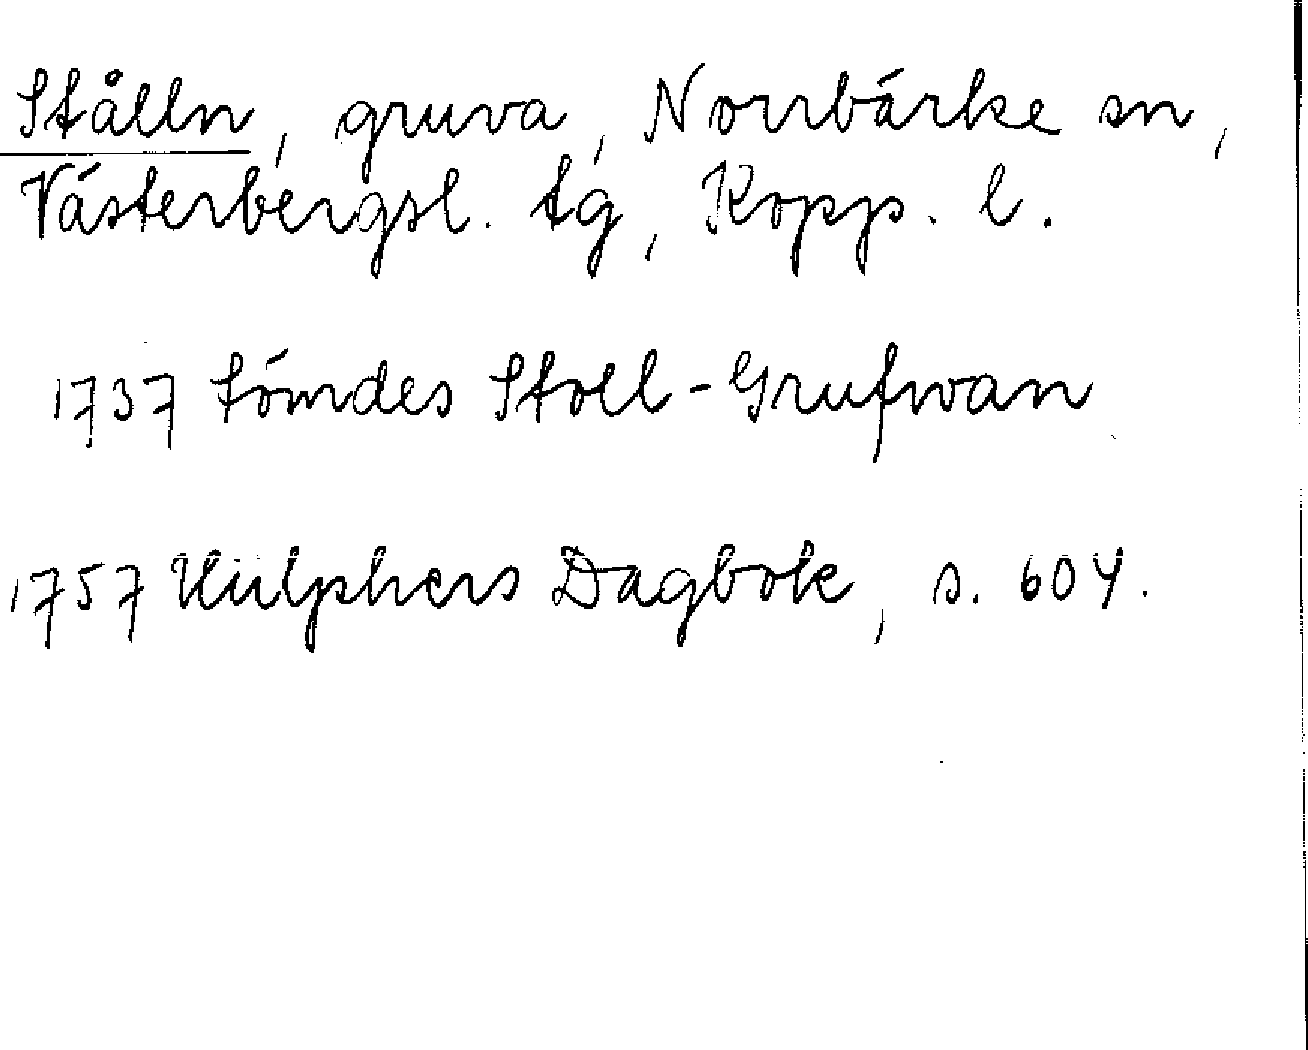 Stålln, gruva, Norrbärke sn,
Västerbergsl. tg, Kopp. l.
1737 tömdes Stoll-Grufwan
1757 Hülphers Dagbok, s. 604.